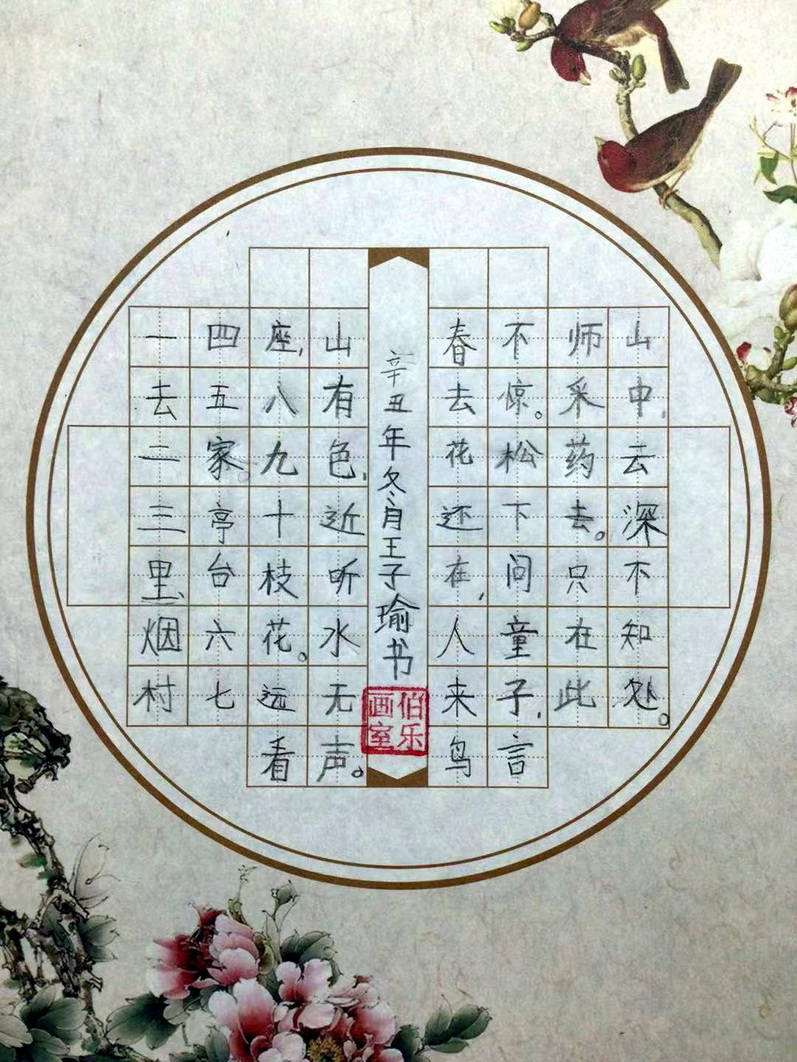 一去二三里,烟村
四五家。亭台六七
座,八九十枝花。远看
山有色,近听水无声。
辛丑年冬月王子瑜书
伯乐画室
春去花还在,人来鸟
不惊。松下问童子,言
师采药去。只在此
山中,云深不知处。